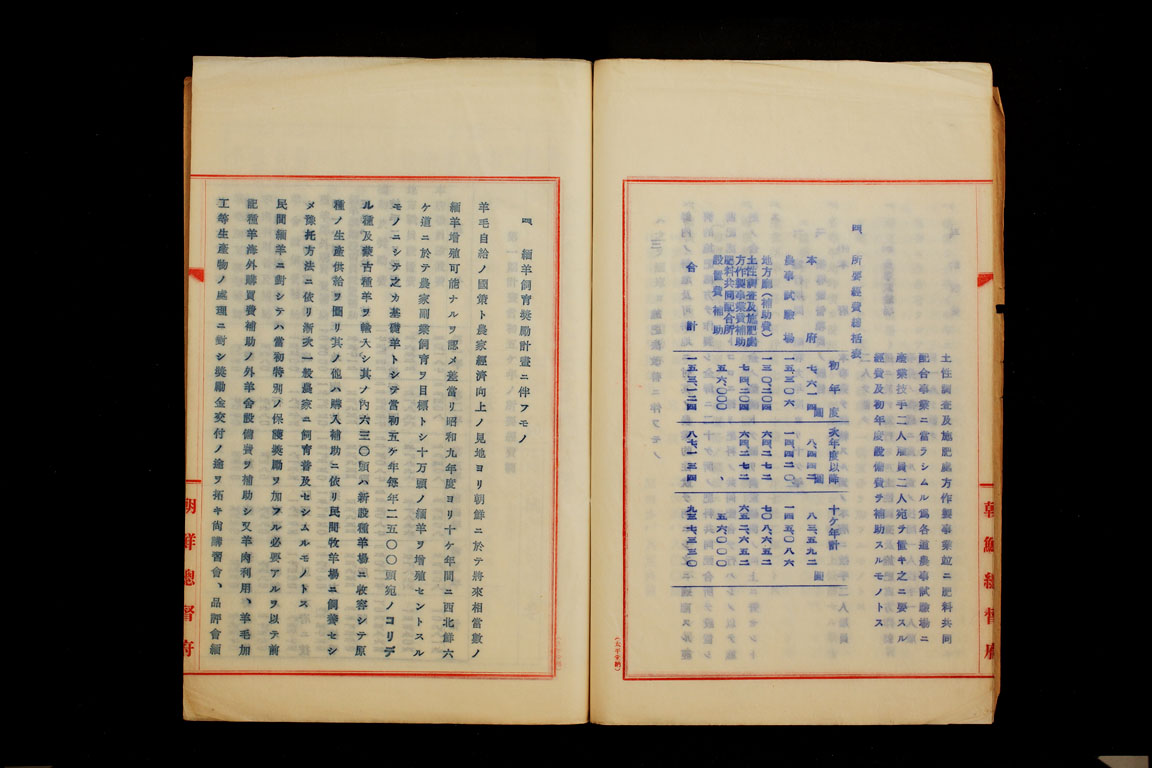 土性調査及施肥處方作製事業竝ニ肥料共同
配合事業ニ當ラシムル爲各道農事試驗場ニ
産業技手二人雇員二人宛ヲ置キ之ニ要スル
經費及初年度設備費ヲ補助スルモノトス
四 所要經費總括表
初年度 次年度以降 十ケ年計
本府 七、六一四圓 八、四四二圓 八三、五九二圓
農事試驗場 一五、三〇六 一四、四二〇 一四五、〇八六
地方廳(補助費) 一三〇、二〇四 六四、二七二 七〇八、六五二
土性調査及施肥處方作製事業費補助 七四、二〇四 六四、二七二 六五二、六五二
肥料共同配合所設置費補助 五六、〇〇〇 、 五六、〇〇〇
合計 一五三、一二四 八七、一三四 九三七、三三〇
朝鮮總督府
四 緬羊飼育奬勵計畫ニ伴フモノ
羊毛自給ノ國策ト農家經濟向上ノ見地ヨリ朝鮮ニ於テ將來相當數ノ
緬羊增殖可能ナルヲ認メ差當リ昭和九年度ヨリ十ケ年間ニ西北鮮六
ケ道ニ於テ農家副業飼育ヲ目標トシ十萬頭ノ緬羊ヲ增殖セントスル
モノニシテ之カ基礎羊トシテ當初五ケ年每年二五〇〇頭宛ノコリデ
ル種及蒙古種羊ヲ輸入シ其ノ內六三〇頭ハ新設種羊場ニ收容シテ原
種ノ生産供給ヲ圖リ其ノ他ハ購入補助ニ依リ民間牧羊場ニ飼養セシ
メ豫托方法ニ依リ漸次一般農家ニ飼育普及セシムルモノトス
民間緬羊ニ對シテハ當初特別ノ保護奬勵ヲ加フル必要アルヲ以テ前
記種羊海外購買費補助ノ外羊舍設備費ヲ補助シ又羊肉利用、羊毛加
工等生産物ノ處理ニ對シ奬勵金交付ノ途ヲ拓キ尙講習會、品評會緬
朝鮮總督府